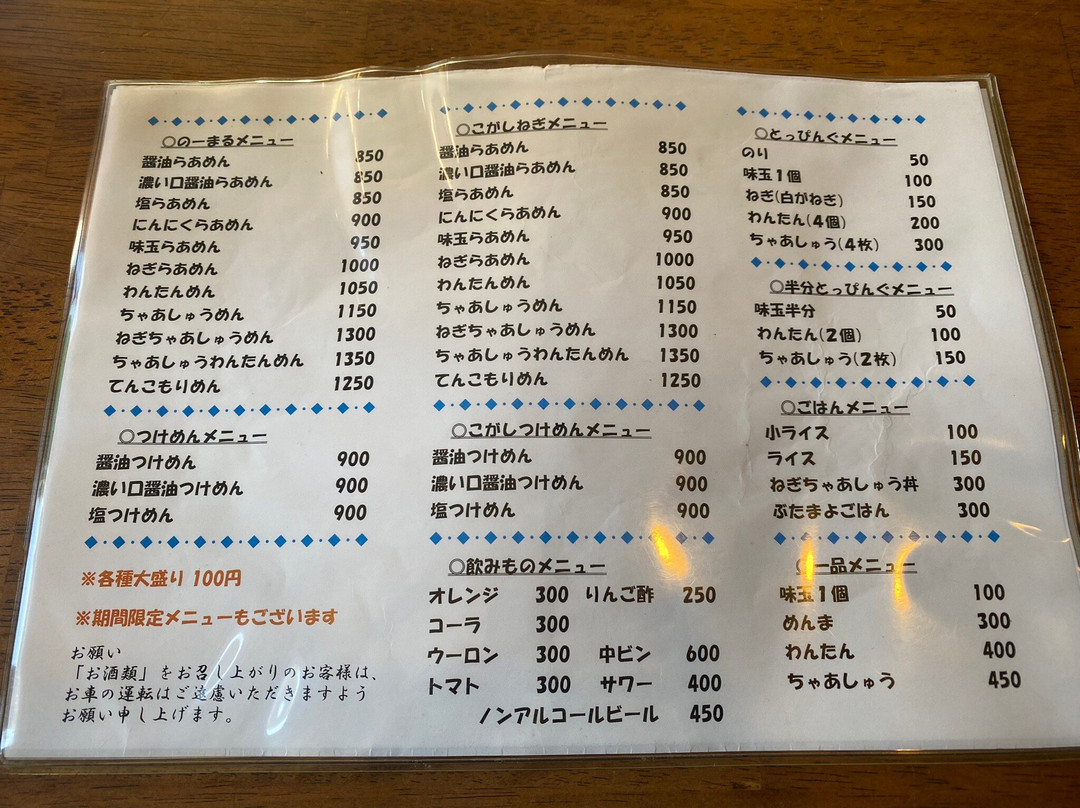 ○のーまるメニュー
醤油らあめん 850
濃い口醤油らあめん 850
塩らあめん 850
にんにくらあめん 900
味玉らあめん 950
ねぎらあめん 1000
わんたんめん 1050
ちゃあしゅうめん 1150
ねぎちゃあしゅうめん 1300
ちゃあしゅうわんたんめん 1350
てんこもりめん 1250
○つけめんメニュー
醤油つけめん 900
濃い口醤油つけめん 900
塩つけめん 900
※各種大盛り 100円
※期間限定メニューもございます
お願い
「お酒類」をお召し上がりのお客様は、
お車の運転はご遠慮いただきますよう
お願い申し上げます。
○こがしねぎメニュー
醤油らあめん 850
濃い口醤油らあめん 850
塩らあめん 850
にんにくらあめん 900
味玉らあめん 950
ねぎらあめん 1000
わんたんめん 1050
ちゃあしゅうめん 1150
ねぎちゃあしゅうめん 1300
ちゃあしゅうわんたんめん 1350
てんこもりめん 1250
○こがしつけめんメニュー
醤油つけめん 900
濃い口醤油つけめん 900
塩つけめん 900
○飲みものメニュー
オレンジ 300 りんご酢 250
コーラ 300
ウーロン 300 中ビン 600
トマト 300 サワー 400
ノンアルコールビール 450
○とっぴんぐメニュー
のり 50
味玉1個 100
ねぎ(白がねぎ) 150
わんたん(4個) 200
ちゃあしゅう(4枚) 300
○半分とっぴんぐメニュー
味玉半分 50
わんたん(2個) 100
ちゃあしゅう(2枚) 150
○ごはんメニュー
小ライス 100
ライス 150
ねぎちゃあしゅう丼 300
ぶたまよごはん 300
○一品メニュー
味玉1個 100
めんま 300
わんたん 400
ちゃあしゅう 450